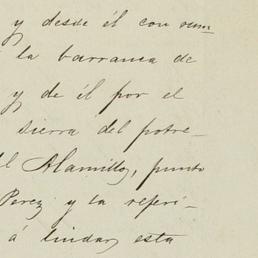 y desde él con rum=
la barranca de
y de él por el
sierra del potre-
el Alamillo, punto
Perez y la referi-
á lindar esta